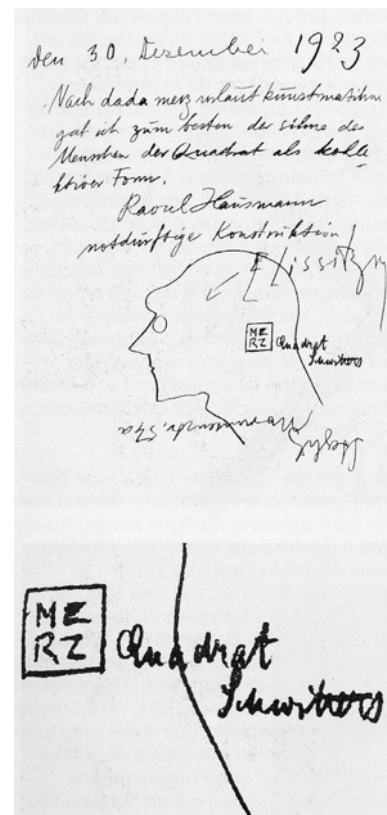 den 30. Dezember 1923
Nach dada merz
gab ich zum besten der
Menschen der Quadrat als kolle
ktiver Form.
Raoul Hausmann
notdürftige Konstruktion!
El Lissitzky
ME
RZ
Quadrat
Schwitters
57a
ME
RZ
Quadrat
Schwitters